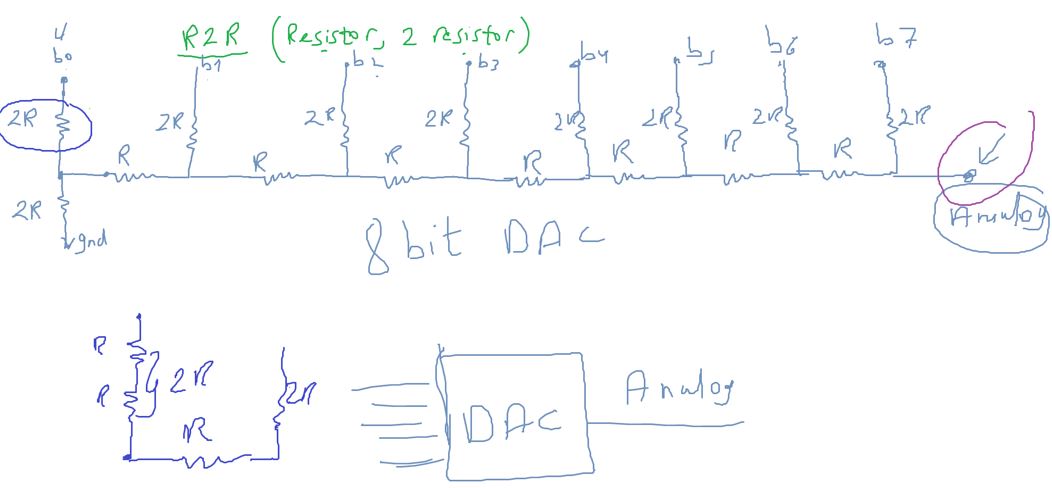 R2R (Resistor, 2 resistor)
b0 b1 b2 b3 b4 b5 b6 b7
2R 2R 2R 2R 2R 2R 2R 2R
R R R R R R R
2R
gnd
Analog
8 bit DAC
R
R
2R
2R
R
Analog
DAC